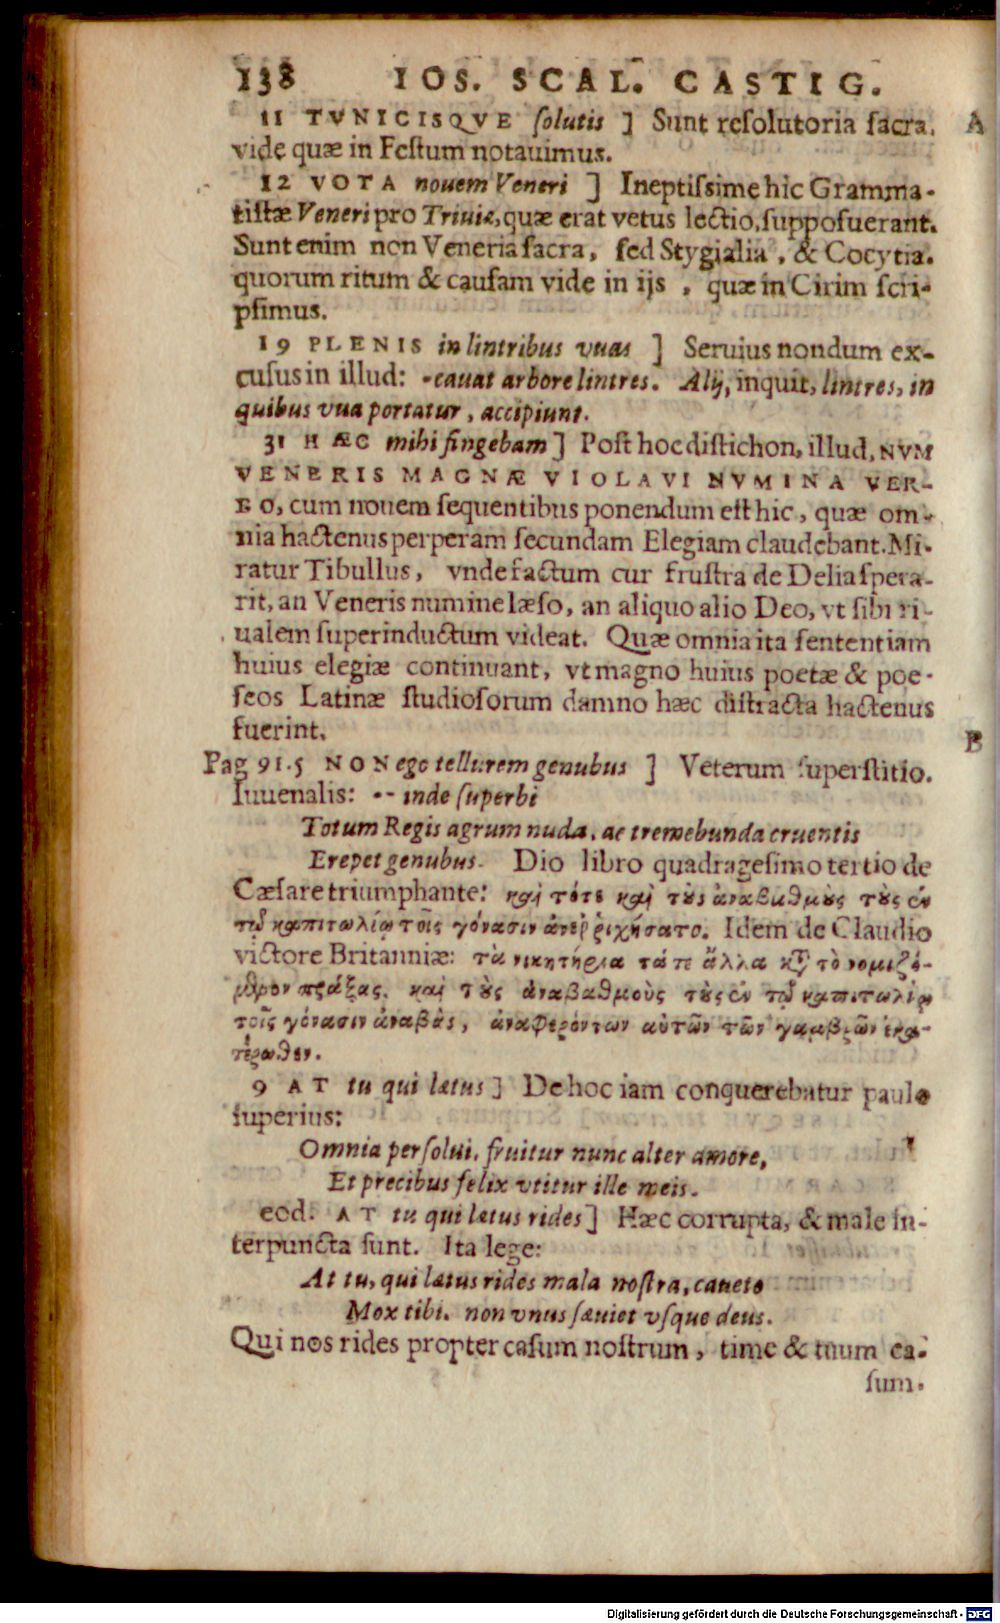 138 IOS. SCAL. CASTIG.
11 TVNICISQVE solutis ] Sunt resolutoria sacra. A
vide quæ in Festum notauimus.
12 VOTA nouem Veneri ] Ineptissime hic Gramma-
tistæ Veneri pro Triuiæ, quæ erat vetus lectio, supposuerant.
Sunt enim non Veneria sacra, sed Stygialia, & Cocytia.
quorum ritum & causam vide in ijs, quæ in Cirim scri-
psimus.
19 PLENIS in lintribus vuas ] Seruius nondum ex-
cusus in illud: -cauat arbore lintres. Alij, inquit, lintres, in
quibus vua portatur, accipiunt.
31 HÆC mihi fingebam ] Post hoc distichon, illud, NVM
VENERIS MAGNÆ VIOLAVI NVMINA VER-
BO, cum nouem sequentibus ponendum est hic, quæ om-
nia hactenus perperam secundam Elegiam claudebant. Mi-
ratur Tibullus, vnde factum cur frustra de Delia spera-
rit, an Veneris numine læso, an aliquo alio Deo, vt sibi ri-
ualem superinductum videat. Quæ omnia ita sententiam
huius elegiæ continuant, vt magno huius poetæ & poe-
seos Latinæ studiosorum damno hæc distracta hactenus
fuerint. B
Pag 91.5 NON ego tellurem genubus ] Veterum superstitio.
Iuuenalis: -- inde superbi
Totum Regis agrum nuda, ac tremebunda cruentis
Erepet genubus. Dio libro quadragesimo tertio de
Cæsare triumphante: καὶ τότε καὶ τοὺς ἀναβαθμοὺς τοὺς ἐν
τῷ καπιτωλίῳ τοῖς γόνασιν ἀνεῤῥιχήσατο. Idem de Claudio
victore Britanniæ: τὰ νικητήρια τά τε ἄλλα κατὰ τὸ νομιζό-
μενον πράξας, καὶ τοὺς ἀναβαθμοὺς τοὺς ἐν τῷ καπιτωλίῳ
τοῖς γόνασιν ἀναβὰς, ἀναφερόντων αὐτὸν τῶν γαμβρῶν ἑκα-
τέρωθεν.
9 AT tu qui lætus ] De hoc iam conquerebatur paulo
superius:
Omnia persolui, fruitur nunc alter amore,
Et precibus felix vtitur ille meis.
eod. AT tu qui lætus rides ] Hæc corrupta, & male in-
terpuncta sunt. Ita lege:
At tu, qui lætus rides mala nostra, caueto
Mox tibi. non vnus sæuiet vsque deus.
Qui nos rides propter casum nostrum, time & tuum ca-
sum.
Digitalisierung gefördert durch die Deutsche Forschungsgemeinschaft - DFG